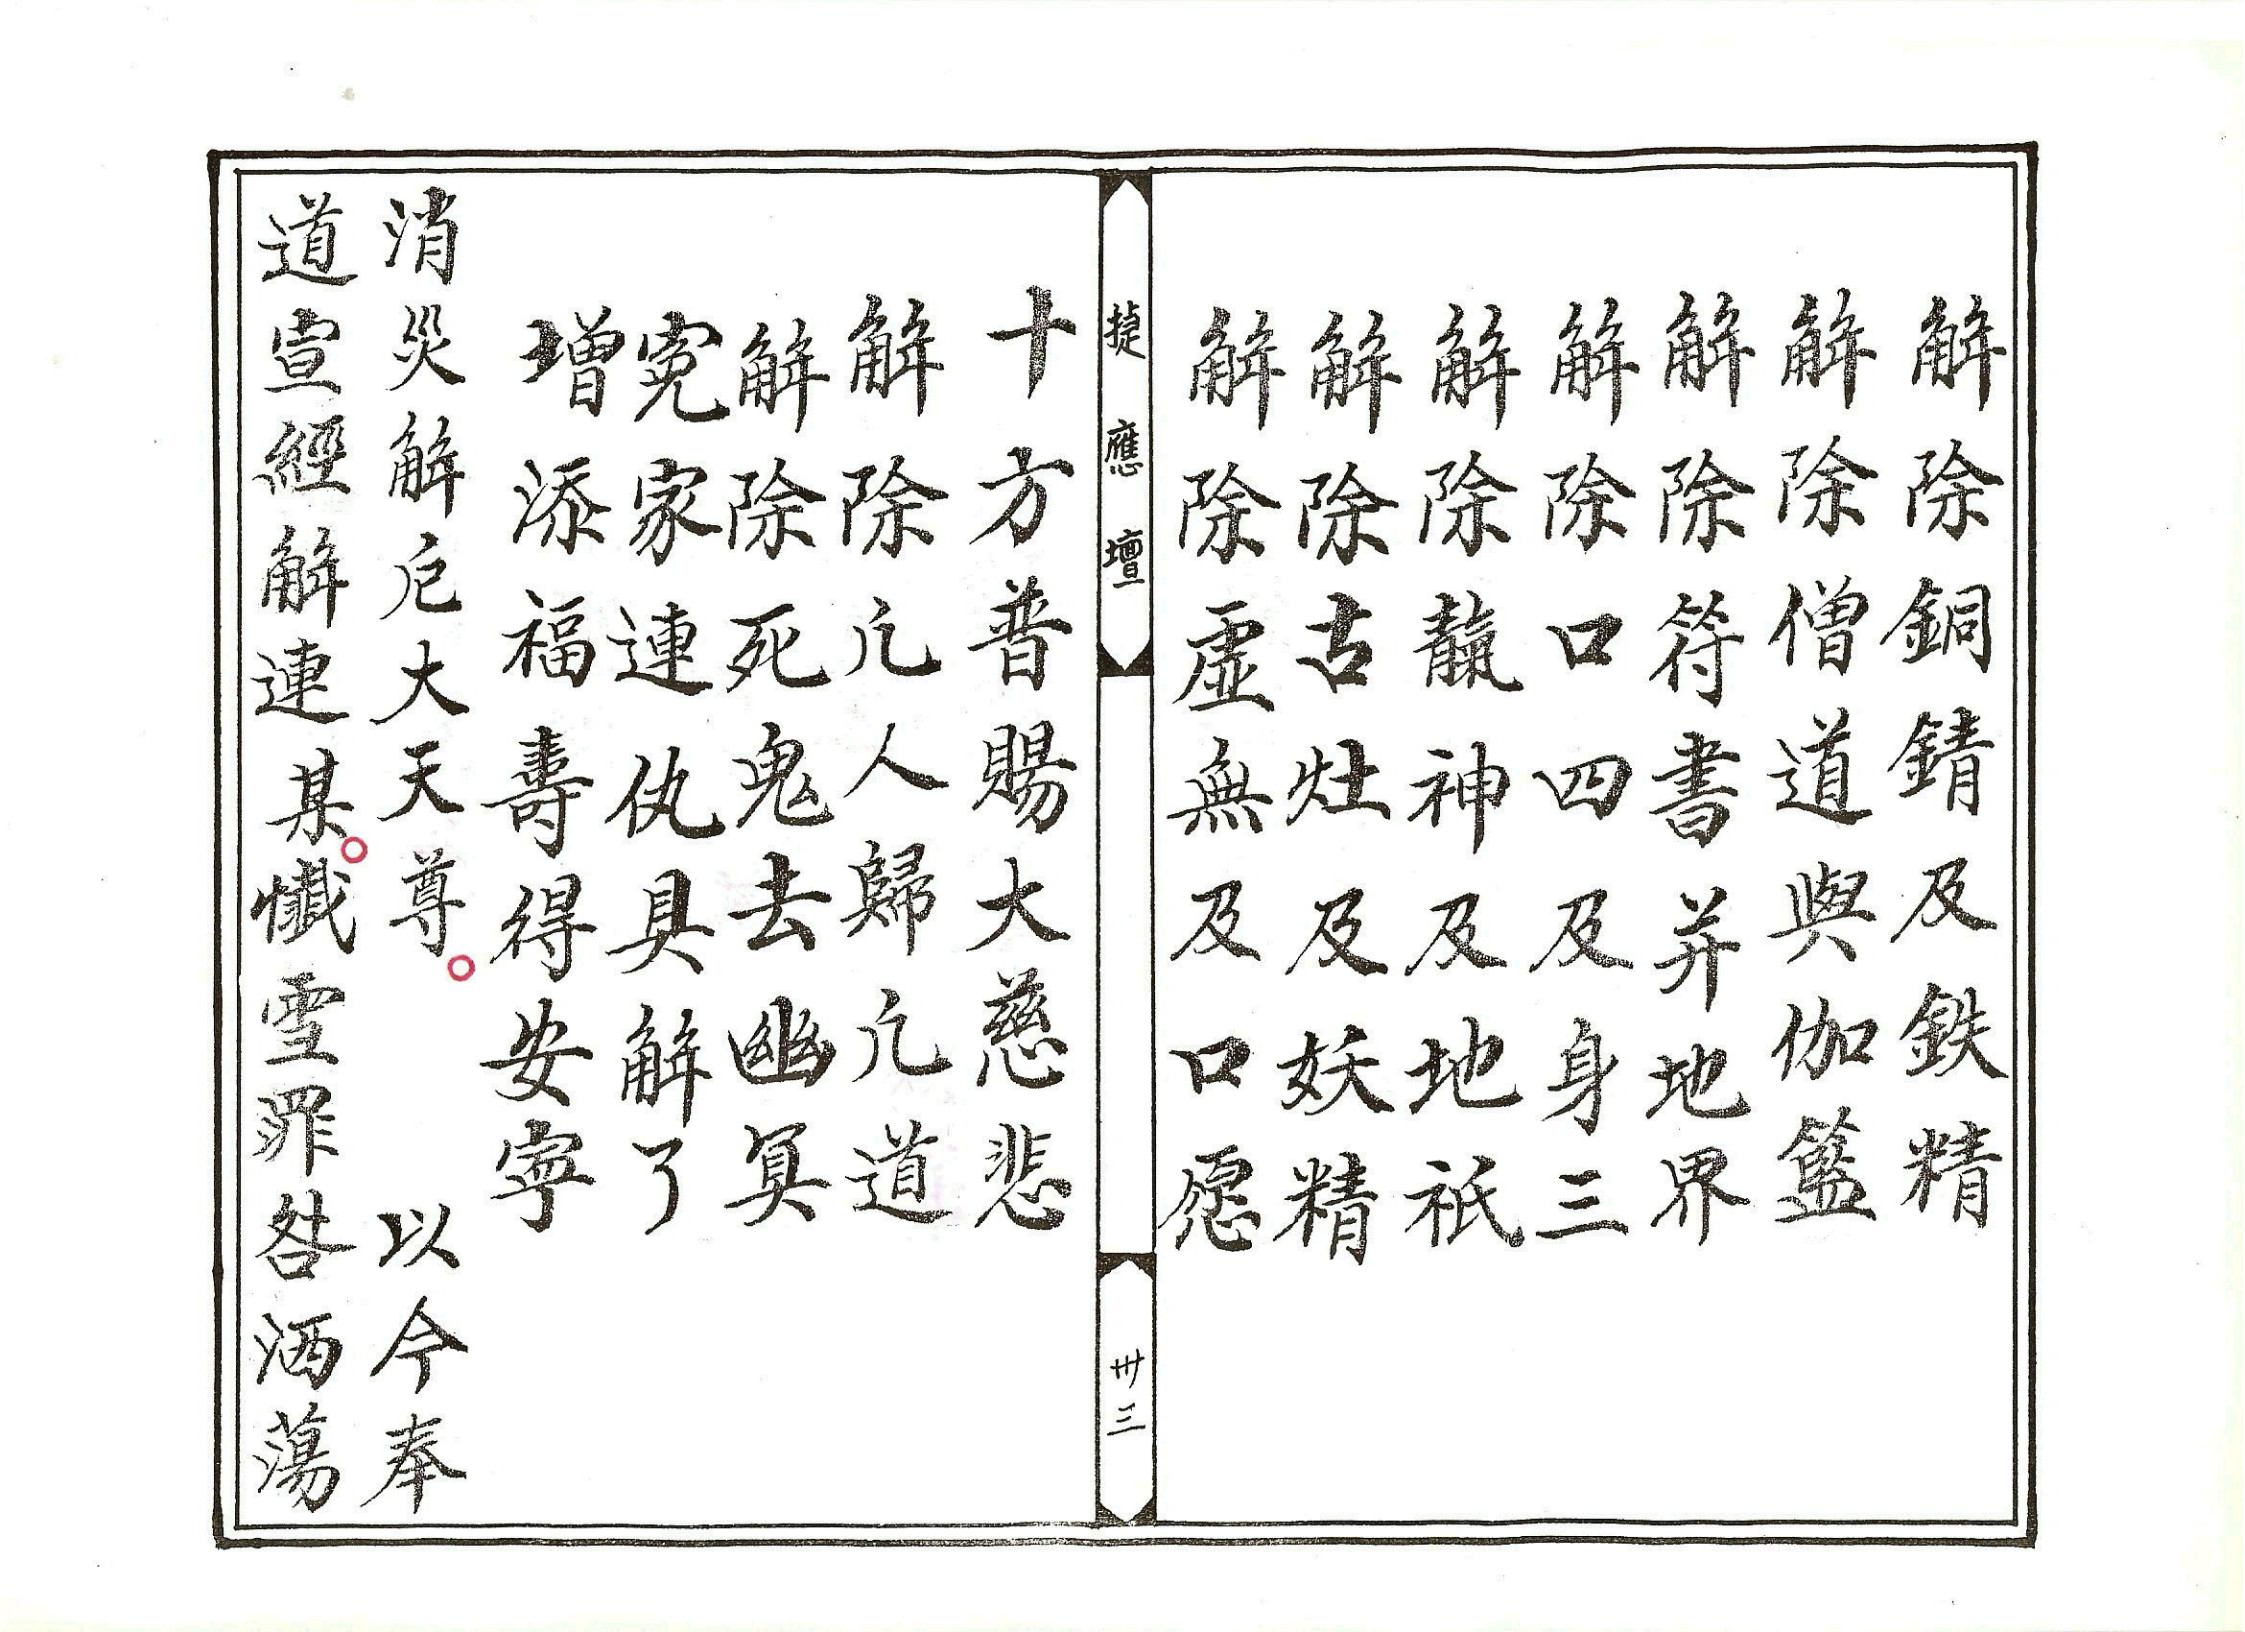 解除銅錆及鉄精
解除僧道與伽籃
解除符書并地界
解除口四及身三
解除神及地祇
解除古灶及妖精
解除虛無及口愿
捷應壇
卅三
十方普賜大慈悲
解除凢人歸凢道
解除死鬼去幽冥
寃家連仇具解了
增添福壽得安寧
消災解厄大天尊。以今奉
道宣經解連某。懺雪罪咎洒蕩